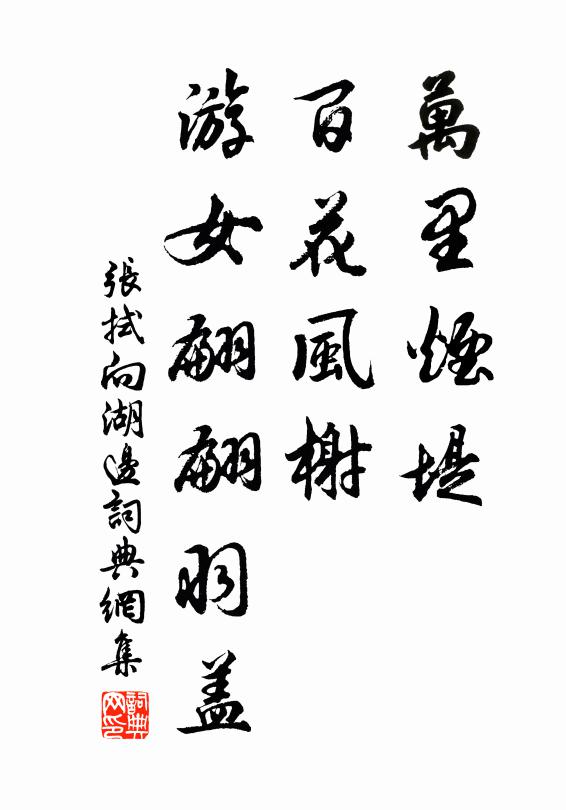 萬里煙堤
百花風榭
游女翩翩羽蓋
張拭向湖邊詞典網集
詞典网印